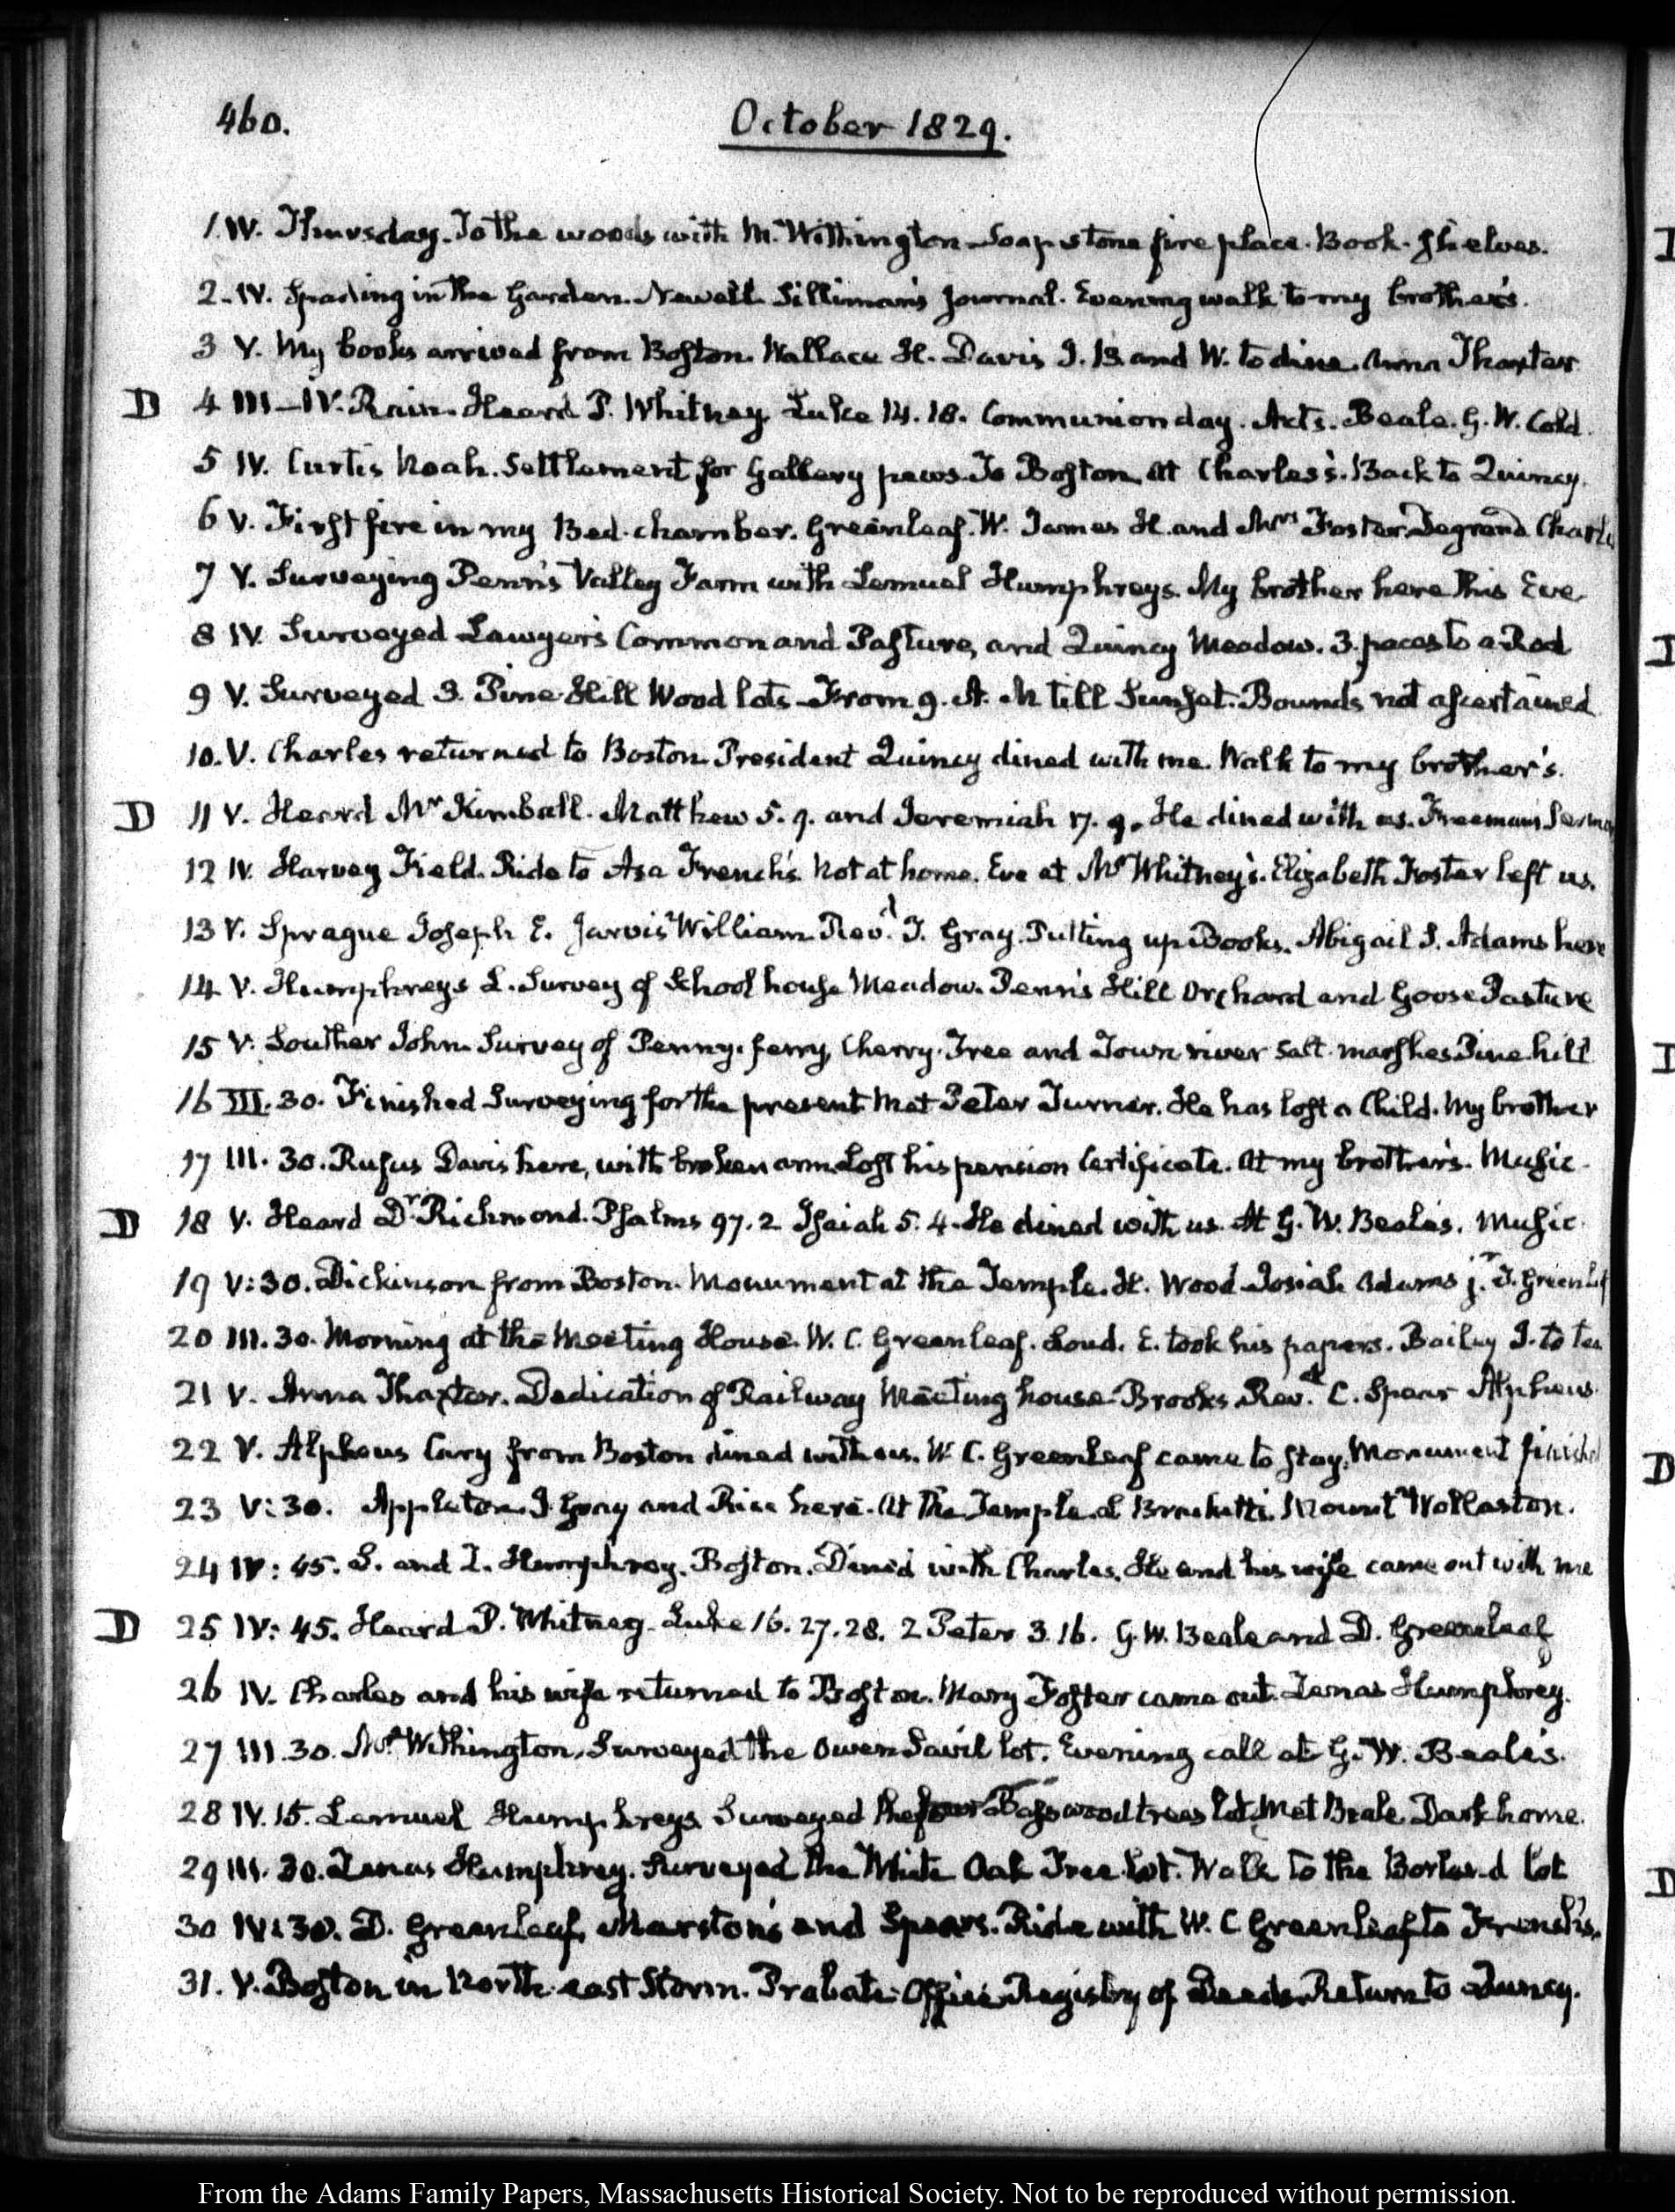 460.
October 1829.
1. IV. Thursday. To the woods with Mr. Withington. Soap stone fire place. Book-shelves.
2. IV. Spading in the Garden. Newell. Silliman's Journal. Evening walk to my brother's.
3 V. My books arrived from Boston. Wallace H. Davis J. B. and W. to dine. Anna Thaxter
D 4 III–IV. Rain. Heard P. Whitney Luke 14. 18. Communion day. Acts. Beale. G. W. Cold.
5 IV. Curtis Noah. Settlement for Gallery pews. To Boston at Charles's. Back to Quincy.
6 V. First fire in my Bed-chamber. Greenleaf. W. James H. and Mrs Foster. Degrand Charles
7 V. Surveying Penn's Valley Farm with Lemuel Humphreys. My brother here this Eve
8 IV. Surveyed Lawyer's Common and Pasture, and Quincy Meadow. 3. paces to a Rod
9 V. Surveyed 3. Pine Hill Wood lots. From 9. A. M till Sunset. Bounds not ascertained
10. V. Charles returned to Boston. President Quincy dined with me. Walk to my brother's.
D 11 V. Heard Mr Kimball. Matthew 5. 9. and Jeremiah 17. 9. He dined with us. Freeman's Sermo
12 IV. Harvey Field. Ride to Asa French's. Not at home. Eve at Mr Whitney's. Elizabeth Foster left us.
13 V. Sprague Joseph E. Jarvis William. Revd. T. Gray. Putting up Books. Abigail S. Adams here
14 V. Humphreys L. Survey of School house Meadow. Penn's Hill Orchard and Goose Pasture
15 V. Souther John. Survey of Penny-ferry, Cherry-Tree and Town river Salt-marshes Pine-hill
16 III. 30. Finished Surveying for the present. Met Peter Turner. He has lost a Child. My brother
17 III. 30. Rufus Davis here, with broken arm. Lost his pension Certificate. At my brother's. Music.
D 18 V. Heard Dr Richmond. Psalms 97. 2 Isaiah 5. 4. He dined with us. At G. W. Beale's. Music.
19 V:30. Dickinson from Boston. Monument at the Temple. H. Wood. Josiah Adams jr. T. Greenleaf
20 III. 30. Morning at the Meeting House. W. C. Greenleaf. Loud. E. took his papers. Bailey J. to tea
21 V. Anna Thaxter. Dedication of Railway Meeting house. Brooks Revd. C. Spear Alpheus
22 V. Alpheus Cary from Boston dined with us. W. C. Greenleaf came to stay. Monument finished
23 V:30. Appleton. J. Gray and Rice here. At the Temple. Mount Wollaston.
24 IV:45. L. and Z. Humphrey. Boston. Dined with Charles. He and his wife came out with me
D 25 IV:45. Heard P. Whitney. Luke 16. 27. 28. 2 Peter 3. 16. G. W. Beale and D. Greenleaf
26 IV. Charles and his wife returned to Boston. Mary Foster came out. Zenas Humphrey.
27 III. 30. Mr Withington. Surveyed the Owen Savil lot. Evening call at G. W. Beale's.
28 IV. 15. Lemuel Humphreys. Surveyed the Basswood trees lot. Met Beale. Dark home.
29 III. 30. Zenas Humphrey. Surveyed the White Oak Tree lot. Walk to the Borland lot
30 IV:30. D. Greenleaf, Marston's and Spears. Ride with W. C Greenleaf to French's.
31. V. Boston in North-east Storm. Probate Office. Registry of Deeds. Return to Quincy.
From the Adams Family Papers, Massachusetts Historical Society. Not to be reproduced without permission.